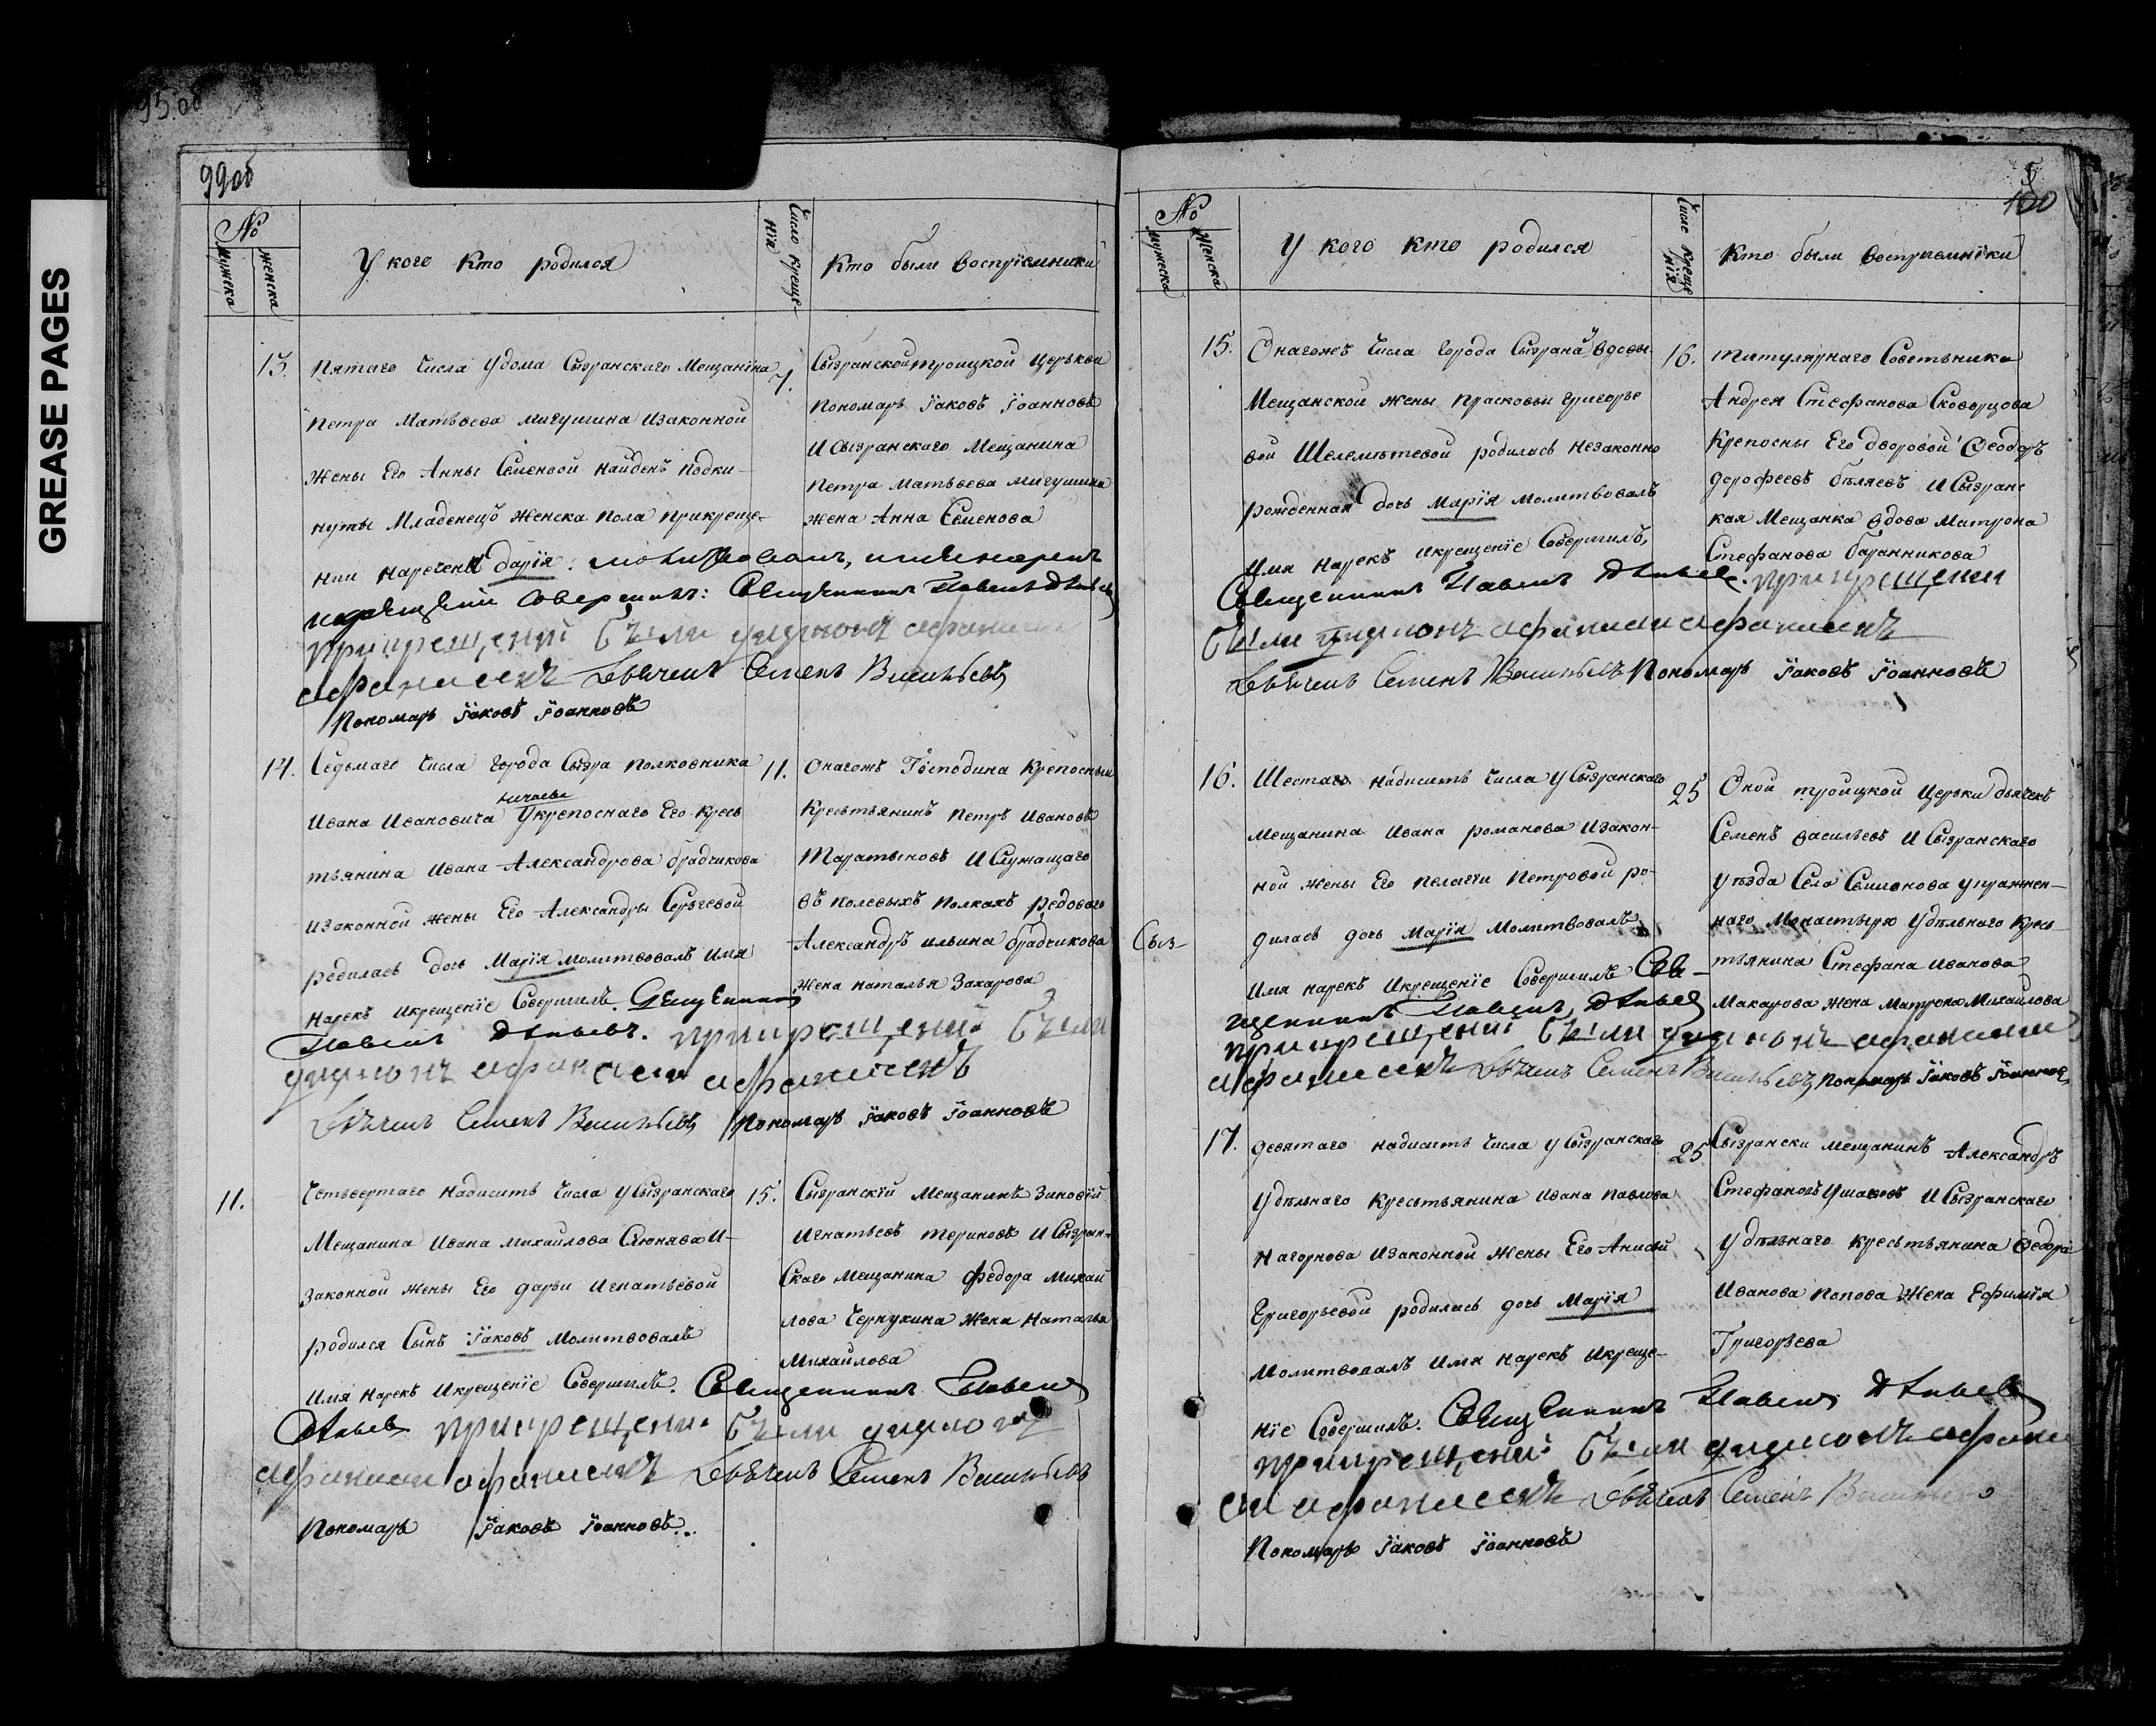 GREASE PAGES
95.об
99об
№
мужеска
женска
У кого кто родился
Число крещенія
Кто были воспріемники
13.
Пятаго числа у дома Сызранскаго Мещанина
Петра Матвѣева Мигушина изаконной
жены Его Анны Семеновой найденъ подки-
нуты Младенецъ женска пола прикреще-
нии наречена дарія. молитвовалъ, имя нарекъ
икрещении совершилъ: Священникъ Павелъ
прикрещении были
Дьячекъ Семенъ Васильевъ
Пономарь Іаковъ Іоанновъ
7.
Сызранской троицкой церькви
Пономарь Іаковъ Іоанновъ
и Сызранскаго Мещанина
Петра Матвѣева Мигушина
жена Анна Семенова
14.
Седьмаго числа города Сызра полковника
Ивана Ивановича укрепоснаго Его кресь
тьянина Ивана Александрова брадчикова
изаконной жены Его Александры Сергѣевой
родилась дочь Марія молитвовалъ имя
нарекъ икрещеніе совершилъ. Священникъ
Павелъ прикрещении были
Дьячекъ Семенъ Васильевъ Пономарь Іаковъ Іоанновъ
11.
Онагожъ Господина крепосныи
кресьтьянинъ Петръ Ивановъ
Таратыновъ и Служащаго
въ полевыхъ полкахъ редоваго
Александръ ильина брадчикова
жена наталья Захарова
11.
Четьвертаго надисить числа у Сызранскаго
Мещанина Ивана михайлова Слюняева и-
законной жены Его дарьи Игнатьевой
родился Сынъ Іаковъ молитвовалъ
имя нарекъ икрещеніе совершилъ. Священникъ Павелъ
прикрещении были
Дьячекъ Семенъ Васильевъ
Пономарь Іаковъ Іоанновъ..
15.
Сызранскій Мещанинъ Зиновій
Игнатьевъ Териновъ и Сызран-
скаго мещанина федора михай
лова Чернухина жена Наталья
Михайлова
5
100
№
мужеска
женска
У кого кто родился
Число крещенія
Кто были воспріемники
15.
Онагожъ числа города Сызрана вдовы
Мещанской жены Прасковьи григорье
вой Шелеметевой родилась незаконно
рожденная дочь Марія молитвовалъ
имя нарекъ икрещеніе совершилъ,
Священникъ Павелъ прикрещении
были
Дьячекъ Семенъ Васильевъ Пономарь Іаковъ Іоанновъ
16.
титулярнаго Советьника
Андрея Стефанова Скворцова
крепосны Его дворовой Феодоръ
дорофеевъ бѣляевъ и Сызранс
кая Мещанка вдова Матрона
Стефанова баранникова
16.
Шестаго надисить числа у Сызранскаго
мещанина Ивана романова изакон-
ной жены Его Пелагіи Петровой ро-
Сыз-
дилась дочь Марія молитвовалъ
имя нарекъ икрещеніе совершилъ Свя-
щенникъ Павелъ
прикрещении были
Дьячекъ Семенъ Васильевъ Пономарь Іаковъ Іоанновъ
25
Оной троицкой церькви дьячекъ
Семенъ васильевъ и Сызранскаго
уѣзда Села Семионова упражнен-
наго монастырю удѣльнаго кресь
тьянина Стефана иванова
Макарова жена матрона Михайлова
17.
девятаго надисить числа у Сызранскаго
удѣльнаго кресьтьянина ивана Павлова
Нагорнова изаконной жены Его Анисьи
Григорьевой родилась дочь Марія
молитвовалъ имя нарекъ икреще-
ніе совершилъ. Священникъ Павелъ
прикрещении были
Дьячекъ Семенъ
Пономарь Іаковъ Іоанновъ
25
Сызрански мещанинъ Александръ
Стефановъ Ушаковъ и Сызранскаго
удѣльнаго кресьтьянина Федора
Иванова Попова жена Ефимія
Григорьева